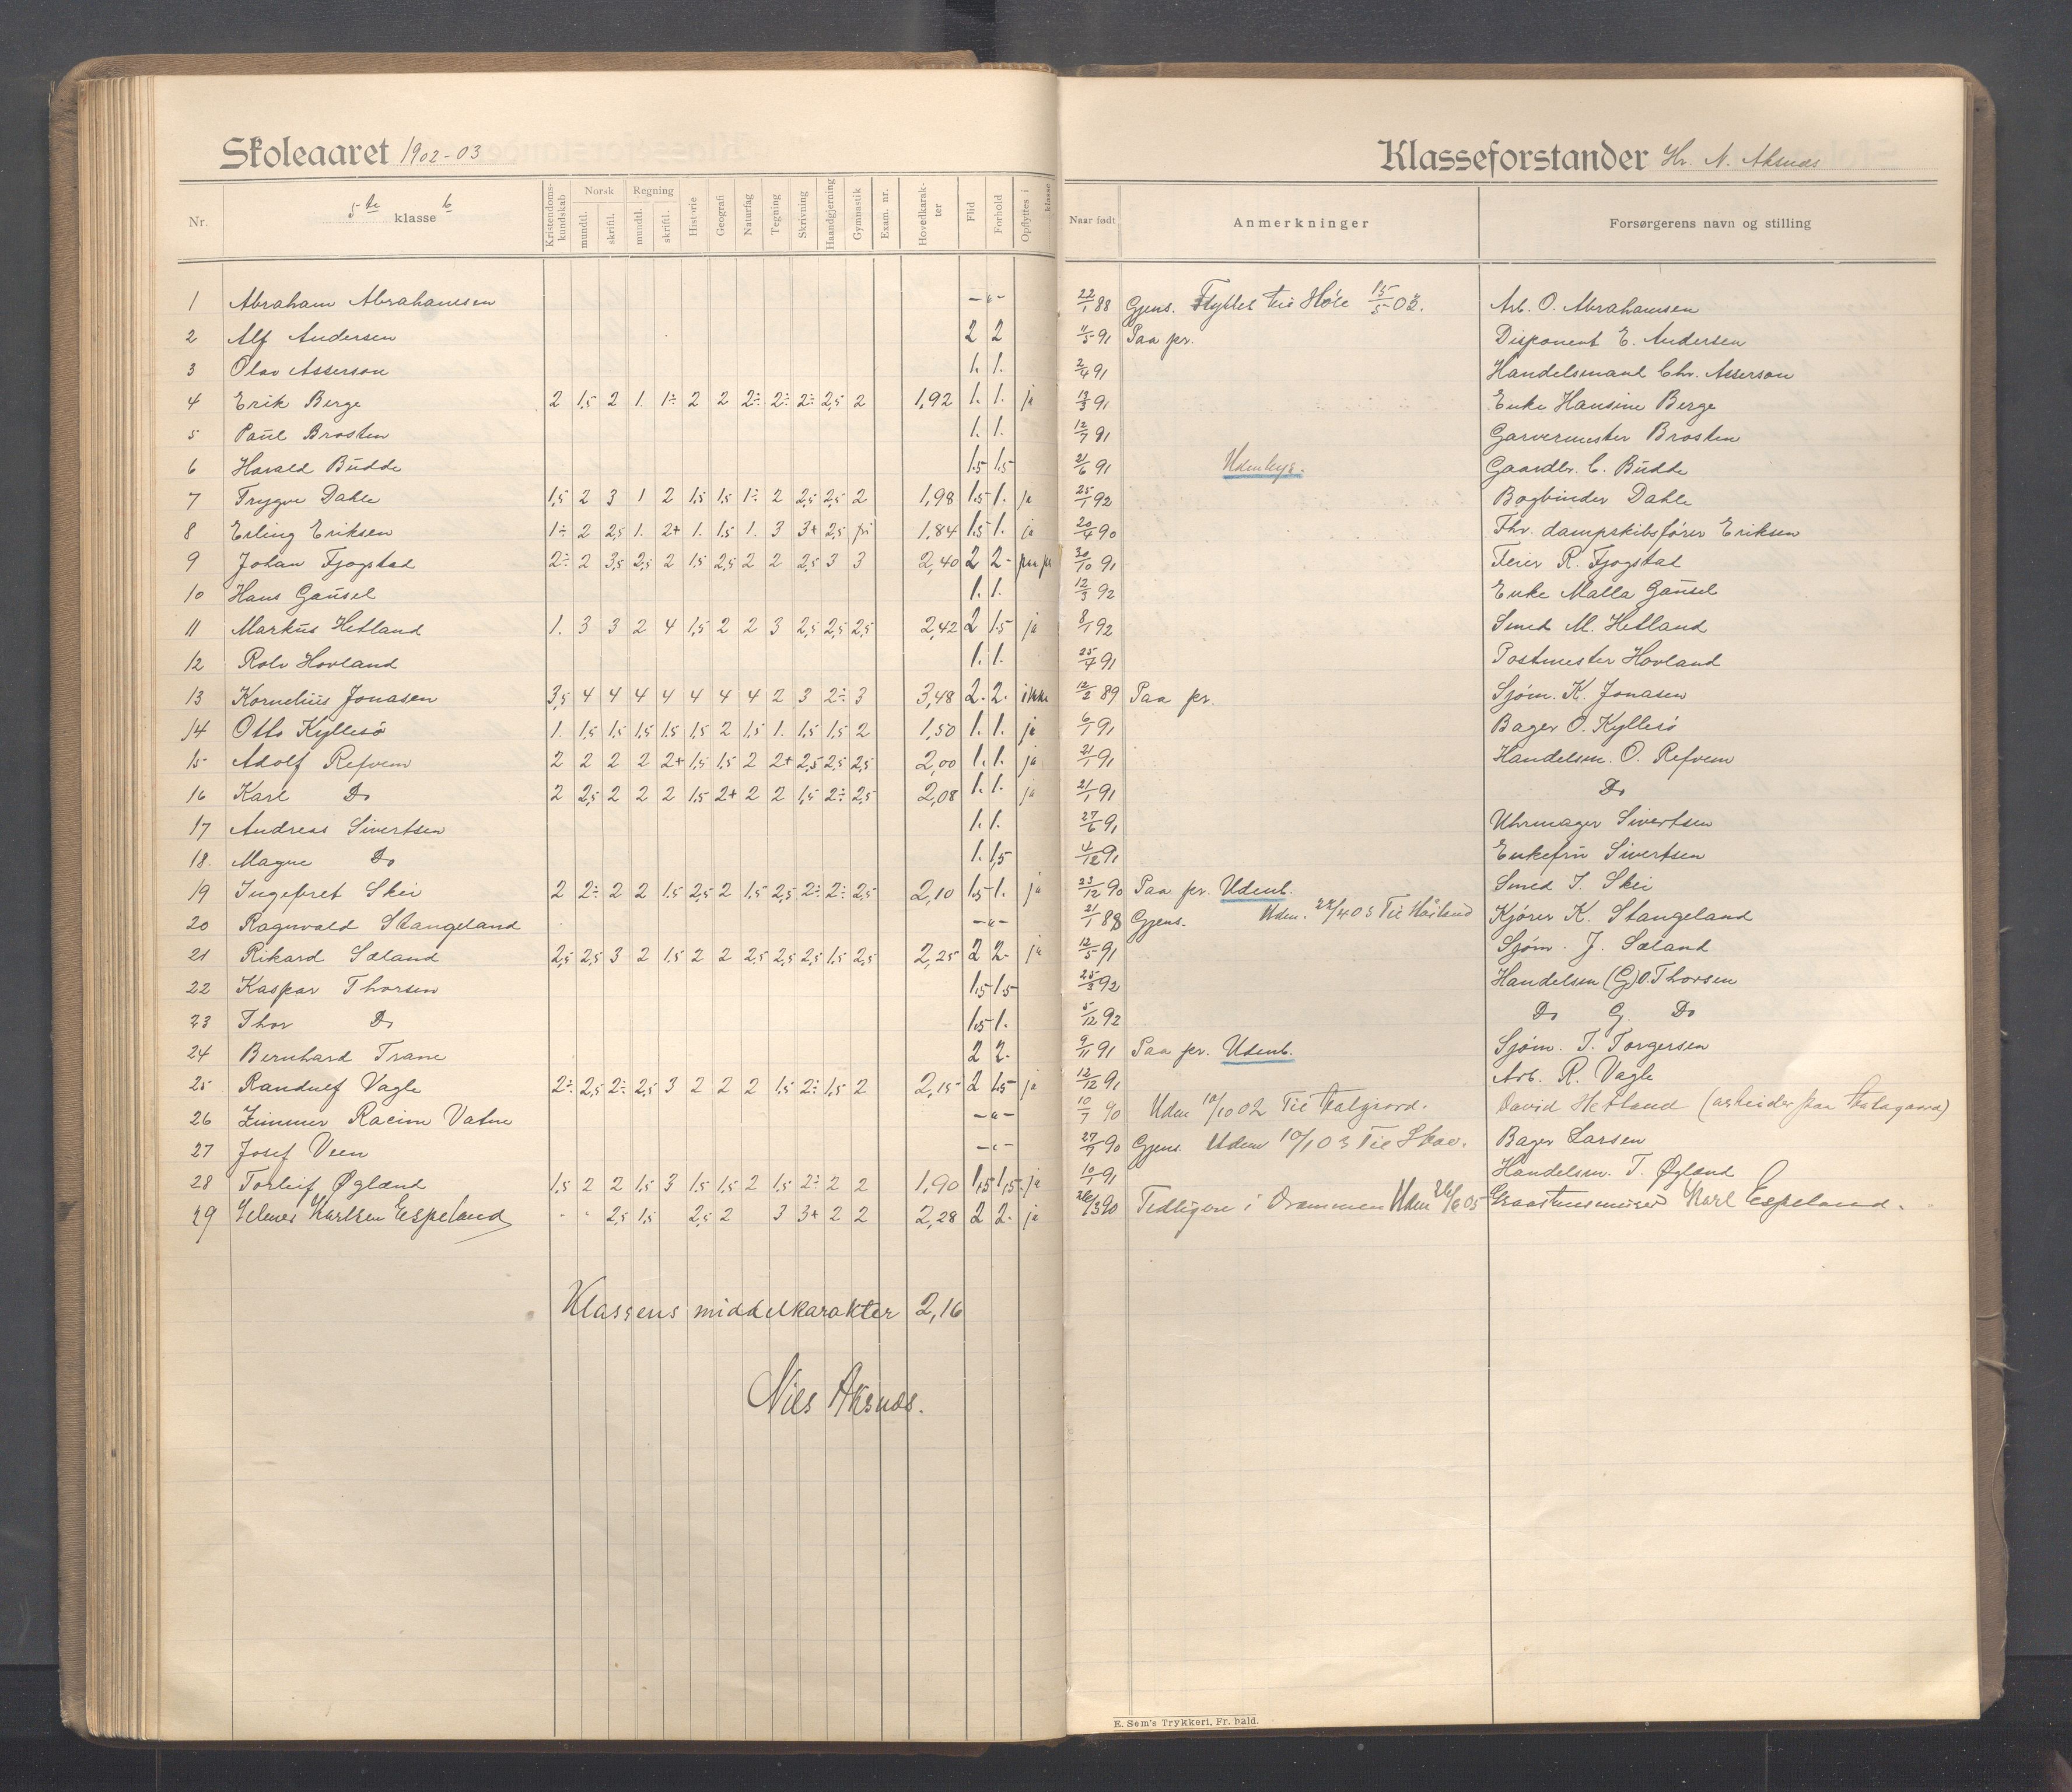 Skoleaaret 1902-03
Klasseforstander Hr. N. Aksnæs
Nr. 5te klasse b Kristendomskundskab Norsk mundtl. skriftl. Regning mundtl. skriftl. Historie Geografi Naturfag Tegning Skrivning Haandgjerning Gymnastik Exam. nr. Hovedkarakter Flid Forhold Opflyttes i klasse
Naar født Anmerkninger Forsørgerens navn og stilling
1 Abraham Abrahamsen -"- 22/1 88 Gjens. Flyttet til Høle 15/5 03. Arb. O. Abrahamsen
2 Alf Andersen 2 2 11/5 91 Paa pr. Disponent E. Andersen
3 Olav Asserson 1. 1. 2/4 91 Handelsmand Chr. Asserson
4 Erik Berge 2 1,5 2 1. 1÷ 2 2 2÷ 2÷ 2÷ 2,5 2 1,92 1. 1. ja 13/3 91 Enke Hansine Berge
5 Paul Brosten 1. 1. 12/7 91 Garvermester Brosten
6 Harald Budde 1.5 1.5 21/6 91 Udenbys. Gaardbr. C. Budde
7 Trygve Dahle 1,5 2 3 1 2 1,5 1,5 1÷ 2 2,5 2,5 2 1,98 1.5 1. ja 25/1 92 Bogbinder Dahle
8 Erling Eriksen 1÷ 2 2,5 1. 2+ 1. 1.5 1. 3 3+ 2,5 fri 1.84 1.5 1. ja 20/4 90 Fhv. dampskibsfører Eriksen
9 Johan Fjogstad 2÷ 2 3,5 2,5 2 1,5 2,5 2 2 2,5 3 3 2,40 2 2- paa pr 30/10 91 Feier R. Fjogstad
10 Hans Gausel 1. 1. 12/3 92 Enke Malla Gausel
11 Markus Hetland 1. 3 3 2 4 1,5 2 2 3 2,5 2,5 2,5 2,42 2 1.5 ja 8/1 92 Smed M. Hetland
12 Rolv Hovland 1. 1. 25/4 91 Postmester Hovland
13 Kornelius Jonasen 3,5 4 4 4 4 4 4 4 2 3 2÷ 3 3,48 2. 2. ikke 12/2 89 Paa pr. Sjøm. K. Jonasen
14 Otto Kyllesø 1. 1,5 1,5 1,5 1,5 1,5 2 1,5 1. 1,5 1,5 2 1,50 1. 1. ja 6/1 91 Bager O. Kyllesø
15 Adolf Refvem 2 2 2 2 2+ 1,5 1,5 2 2+ 2,5 2,5 2,5 2,00 1. 1. ja 21/1 91 Handelsm. O. Refvem
16 Karl Do 2 2,5 2 2 2 1,5 2+ 2 2 1,5 2÷ 2,5 2,08 1. 1. ja 21/1 91 Do
17 Andreas Sivertsen 1. 1. 27/6 91 Uhrmager Sivertsen
18. Magne Do 1. 1,5 4/12 91 Enkefru Sivertsen
19 Ingebret Skei 2 2÷ 2 2 1.5 2,5 2 1,5 2,5 2÷ 2÷ 2,5 2,10 1.5 1. ja 23/12 90 Paa pr. Udenb. Smed I. Skei
20 Ragnvald Stangeland -"- 21/1 88 Gjens. Uden. 22/4 03 Til Kjører K. Stangeland
21 Rikard Sæland 2,5 2,5 3 2 1.5 2 2 2,5 2,5 2,5 1,5 2,5 2,25 2 2- ja 12/5 91 Sjøm. J. Sæland
22 Kaspar Thorsen 1.5 1.5 25/3 92 Handelsm (G) O. Thorsen
23 Thor Do 1.5 1. 5/12 92 Do G. Do
24 Bernhard Trane 2 2- 9/11 91 Paa pr. Udenb. Sjøm. T. Torgersen
25 Randulf Vagle 2÷ 2,5 2÷ 2,5 3 2 2 2 1,5 2÷ 1,5 2 2,15 2 1,5 ja 12/12 91 Arb. R. Vagle
26 Zimmer Racim Vatne -"- 10/7 90 Uden 10/10 02 Til David Hetland (arbeider paa
27 Josef Veen -"- 27/7 90 Gjens. Uden 10/1 03 Til Bager Larsen
28 Torleif Øgland 1,5 2 2 1,5 3 1,5 1,5 2 1,5 2÷ 2 2 1,90 1,5 1,5 ja 10/1 91 Handelsm. T. Øgland
29 Karlsen Espeland " " 2,5 1,5 2,5 2 3 3+ 2 2 2,28 2 2- ja 26/3 90 Tidligere i Drammen Uden 26/6 05 Karl Espeland.
Klassens middelkarakter 2,16
Nils Aksnæs.
E. Sem's Trykkeri, Fr. hald.